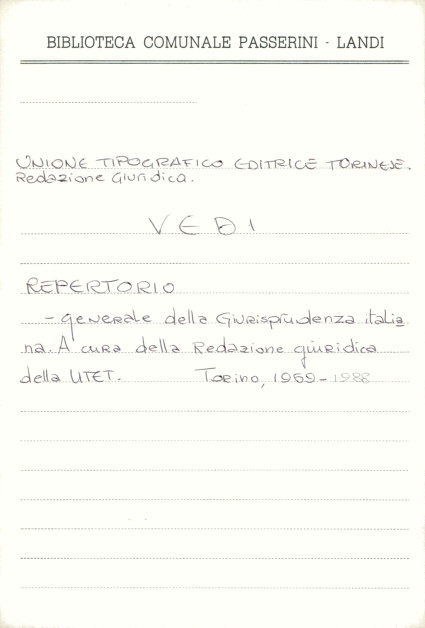 BIBLIOTECA COMUNALE PASSERINI - LANDI
UNIONE TIPOGRAFICO EDITRICE TORINESE.
Redazione Giuridica.
VEDI
REPERTORIO
- generale della Giurisprudenza italia
na. A cura della Redazione giuridica
della UTET. Torino, 1969-1988